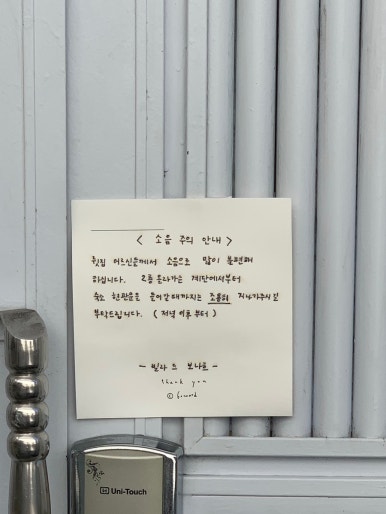 < 소음 주의 안내 >
윗집 어르신분께서 소음으로 많이 불편해
하십니다. 2층 올라가는 계단에서부터
숙소 현관문을 들어갈때까지는 조용히 지나가주시길
부탁드립니다. ( 저녁 이후 부터 )
- 빌라 드 보나르 -
thank you
Uni-Touch